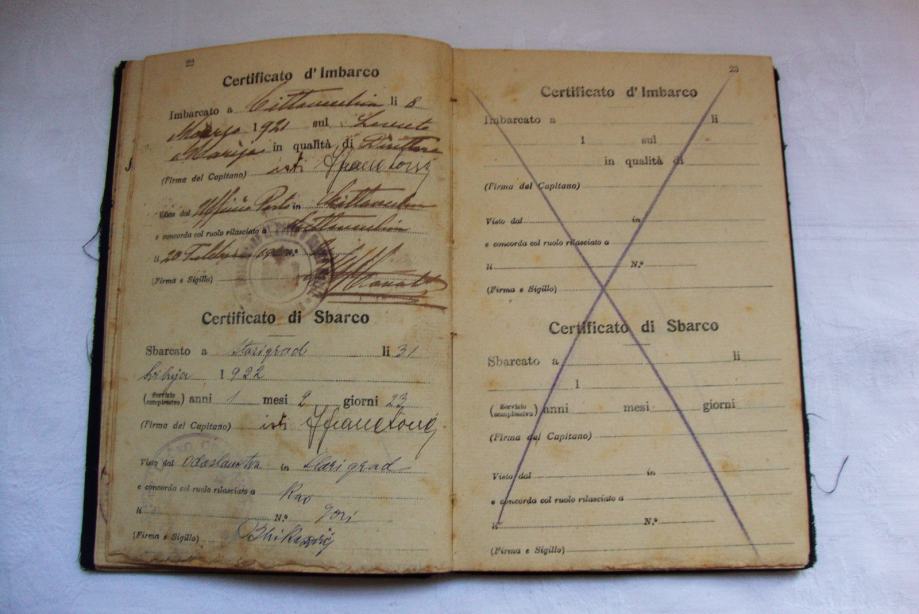 22
Certificato d'Imbarco
Imbarcato a Cittavecchia li 8
Marzo 1921 sul
Marija in qualità di
(Firma del Capitano) isti
Visto dal Ufficio Porto in Cittavecchia
e concorda col ruolo rilasciato a Cittavecchia
li 20 N.º
(Firma e Sigillo)
Certificato di Sbarco
Sbarcato a Starigrad li 31
svibnja 1922
(Servizio complessivo) anni 1 mesi 2 giorni 23
(Firma del Capitano) isti
Visto dal odaslanstva in Starigrad
e concorda col ruolo rilasciato a Kao
li N.º gori
(Firma e Sigillo)
23
Certificato d'Imbarco
Imbarcato a li
1 sul
in qualità di
(Firma del Capitano)
Visto dal in
e concorda col ruolo rilasciato a
li N.º
(Firma e Sigillo)
Certificato di Sbarco
Sbarcato a li
1
(Servizio complessivo) anni mesi giorni
(Firma del Capitano)
Visto dal in
e concorda col ruolo rilasciato a
li N.º
(Firma e Sigillo)